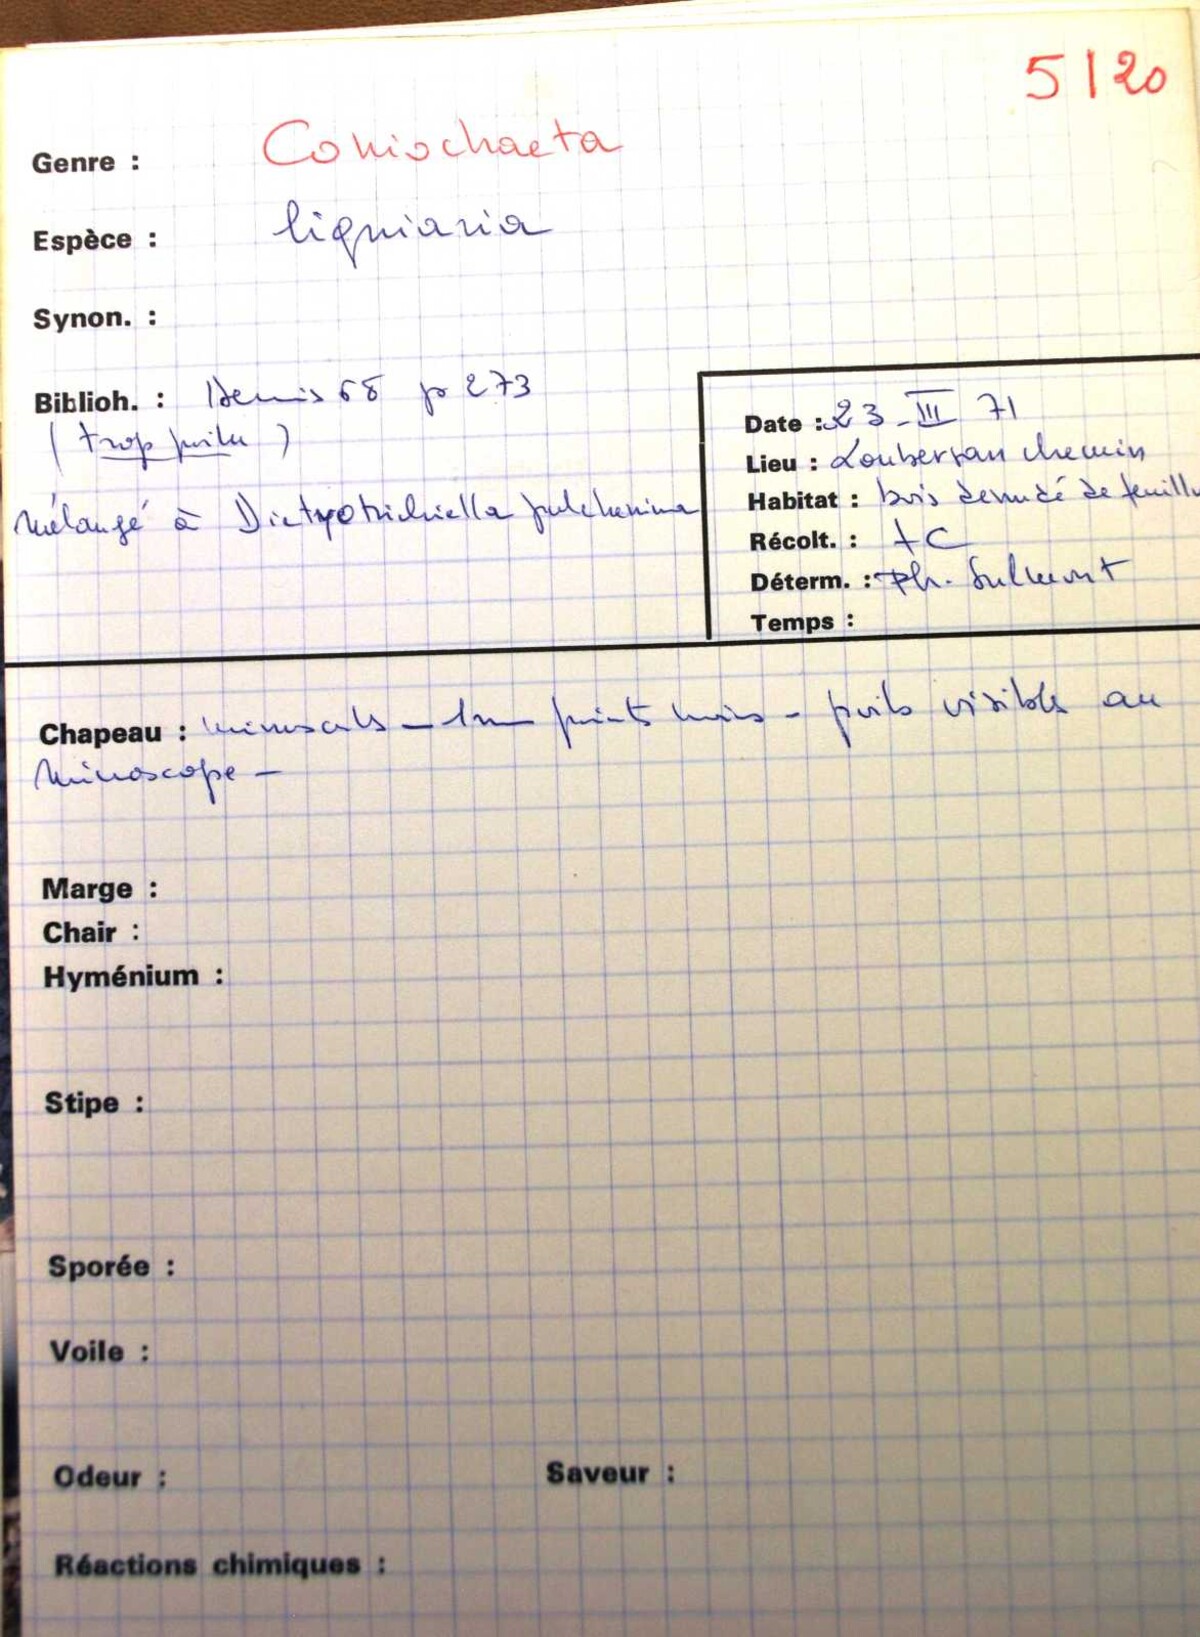 5120
Genre : Coniochaeta
Espèce : ligniaria
Synon. :
Biblioh. : Dennis 68 p 273
(trop poilu)
mélangé à Dictyotrichiella pulcherrima
Date : 23 - III 71
Lieu : Loubersan chemin
Habitat : bois denudé de feuillu
Récolt. : AC
Déterm. : Ph. Sulmont
Temps :
Chapeau : minuscules - points noirs - poils visibles au
microscope -
Marge :
Chair :
Hyménium :
Stipe :
Sporée :
Voile :
Odeur : Saveur :
Réactions chimiques :